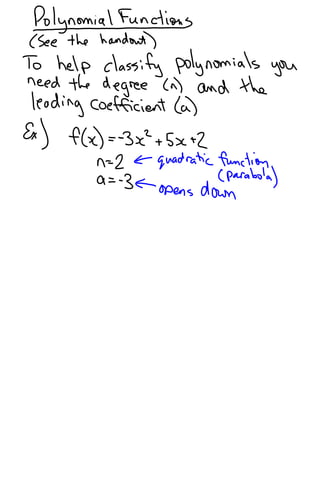 Polynomial Functions
(See the handout)
To help classify polynomials you
need the degree (n) and the
leading coefficient (a)
Ex) f(x)=-3x²+5x+2
n=2 ← quadratic function
(parabola)
a=-3 ← opens down